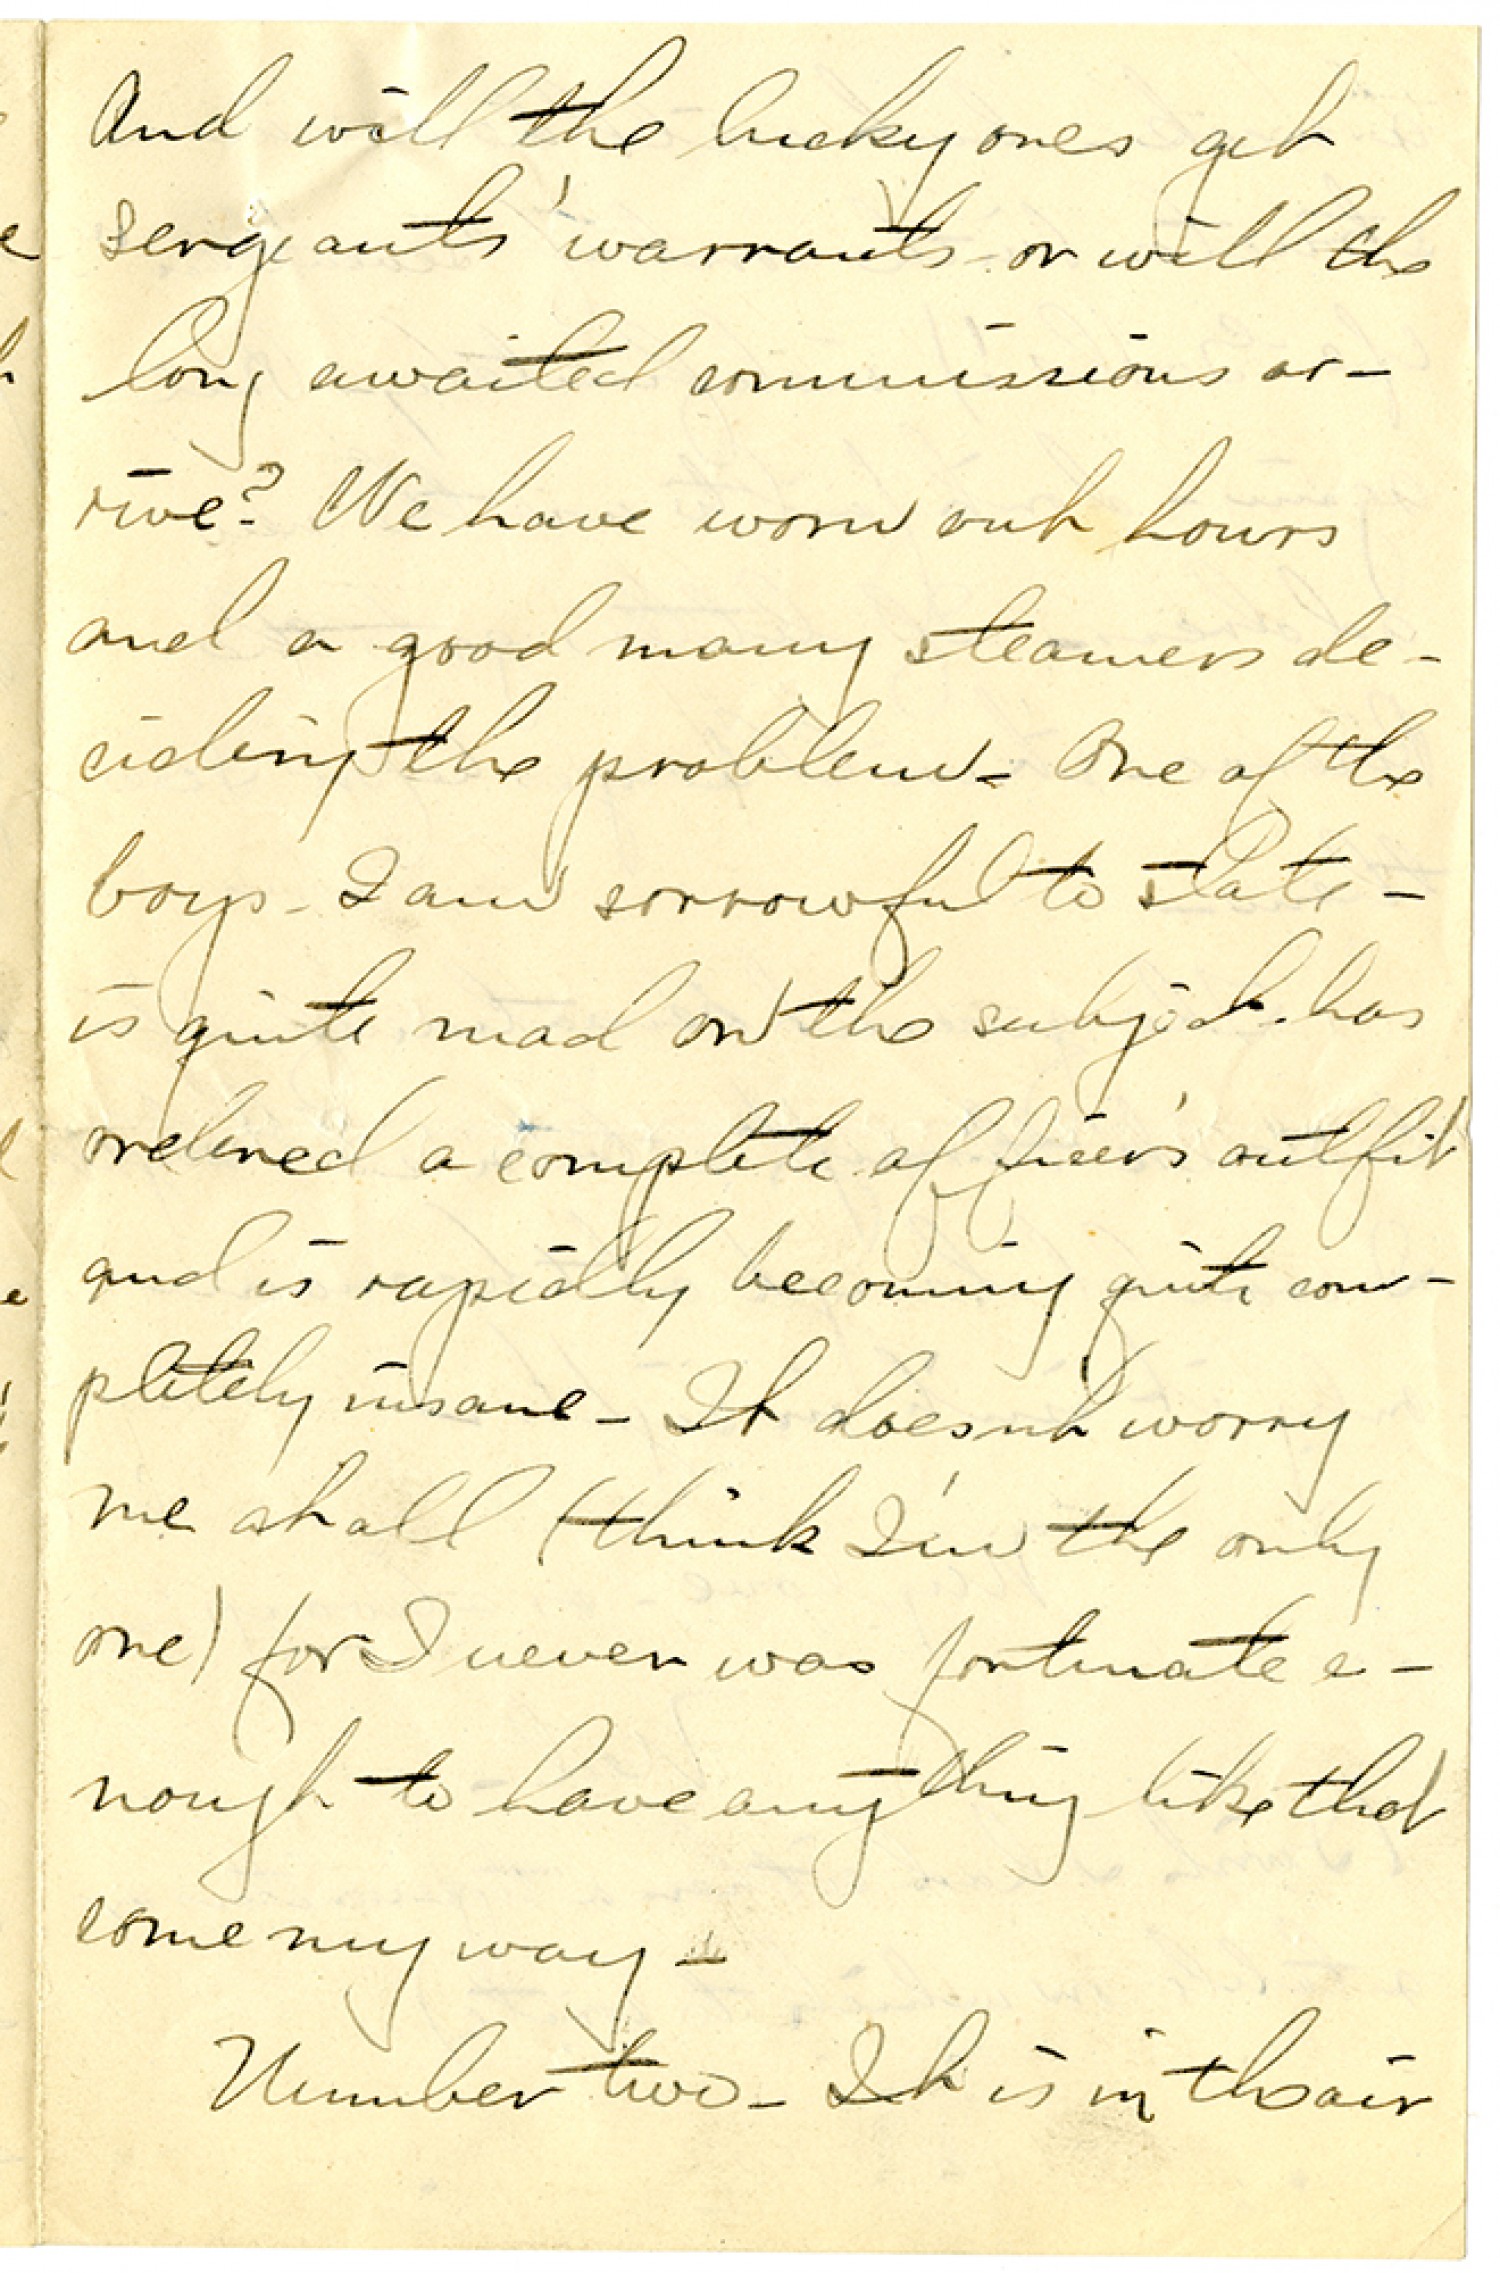 And will the lucky ones get
sergeants' warrants - or will the
long awaited commissions ar-
rive? We have worn out hours
and a good many steamers de-
ciding the problem - One of the
boys - I am sorrowful to state -
is quite mad on the subject - has
ordered a complete officer's outfit
and is rapidly becoming quite com-
pletely insane - It doesn't worry
me at all (think I'm the only
one) for I never was fortunate e-
nough to have anything like that
come my way -
Number two - It is in the air